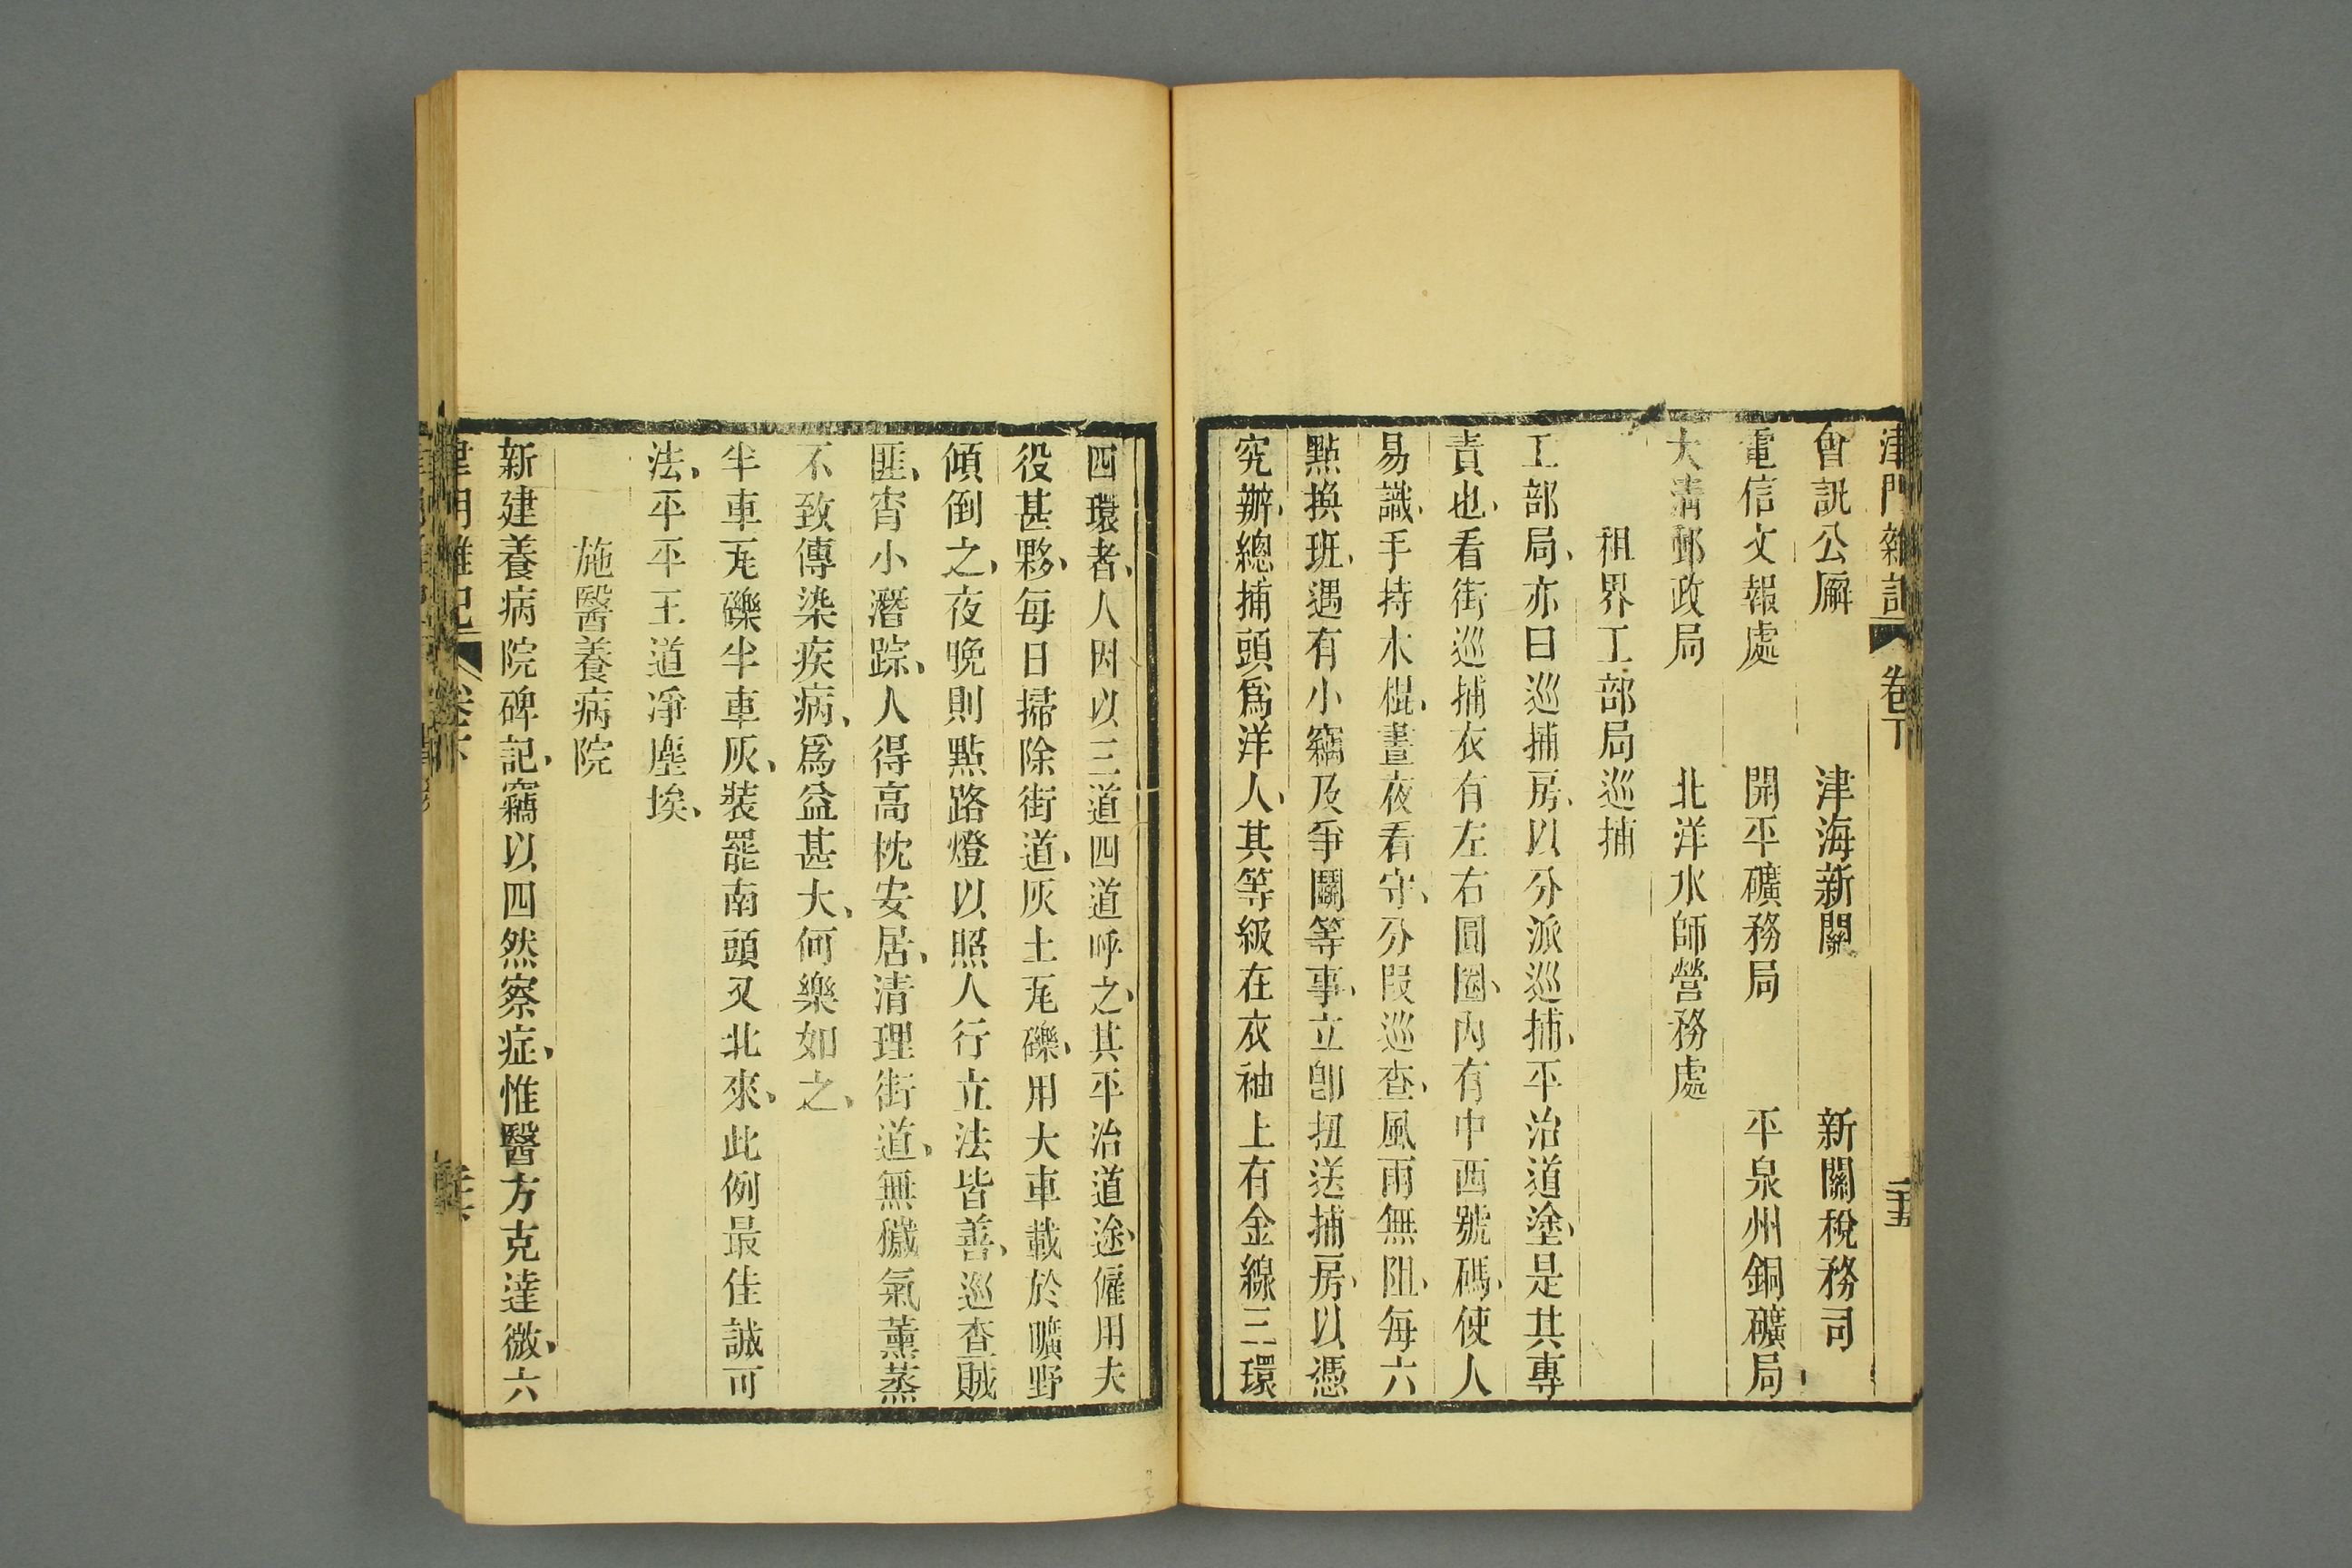 津門雜記 卷下 二十五
會訊公廨 津海新關 新關稅務司
電信文報處 開平礦務局 平泉州銅礦局
大清郵政局 北洋水師營務處
租界工部局巡捕
工部局、亦曰巡捕房、以分派巡捕、平治道塗、是其專
責也、看街巡捕衣有左右圓圈、內有中西號碼、使人
易識、手持木棍、晝夜看守、分段巡查、風雨無阻、每六
點換班、遇有小竊及爭鬭等事、立卽扭送捕房、以憑
究辦、總捕頭爲洋人、其等級在衣袖上有金線三環
四環者、人因以三道四道呼之、其平治道途、僱用夫
役甚夥、每日掃除街道、灰土瓦礫、用大車載於曠野
傾倒之、夜晚則點路燈以照人行、立法皆善、巡查賊
匪、宵小潛踪、人得高枕安居、清理街道、無穢氣薰蒸
不致傳染疾病、爲益甚大、何樂如之、
半車瓦礫半車灰、裝罷南頭又北來、此例最佳誠可
法、平平王道凈塵埃、
施醫養病院
新建養病院碑記、竊以四然察症、惟醫方克達微、六
津門雜記 卷下